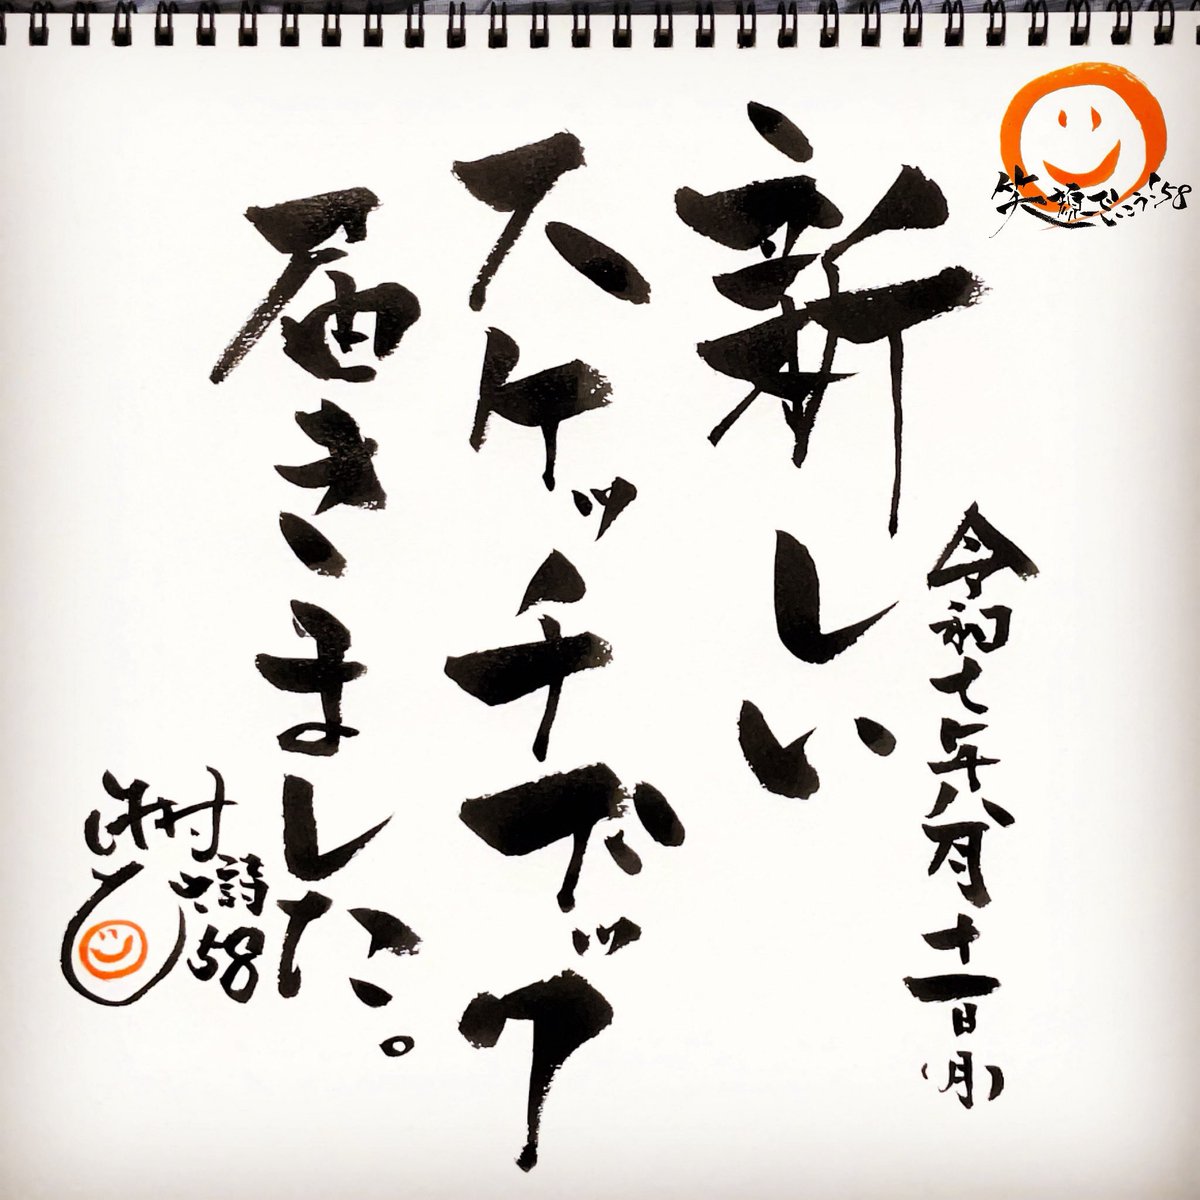 笑顔でいこう!58
令和七年八月十一日(月)
新しい
スケッチブック
届きました。
58